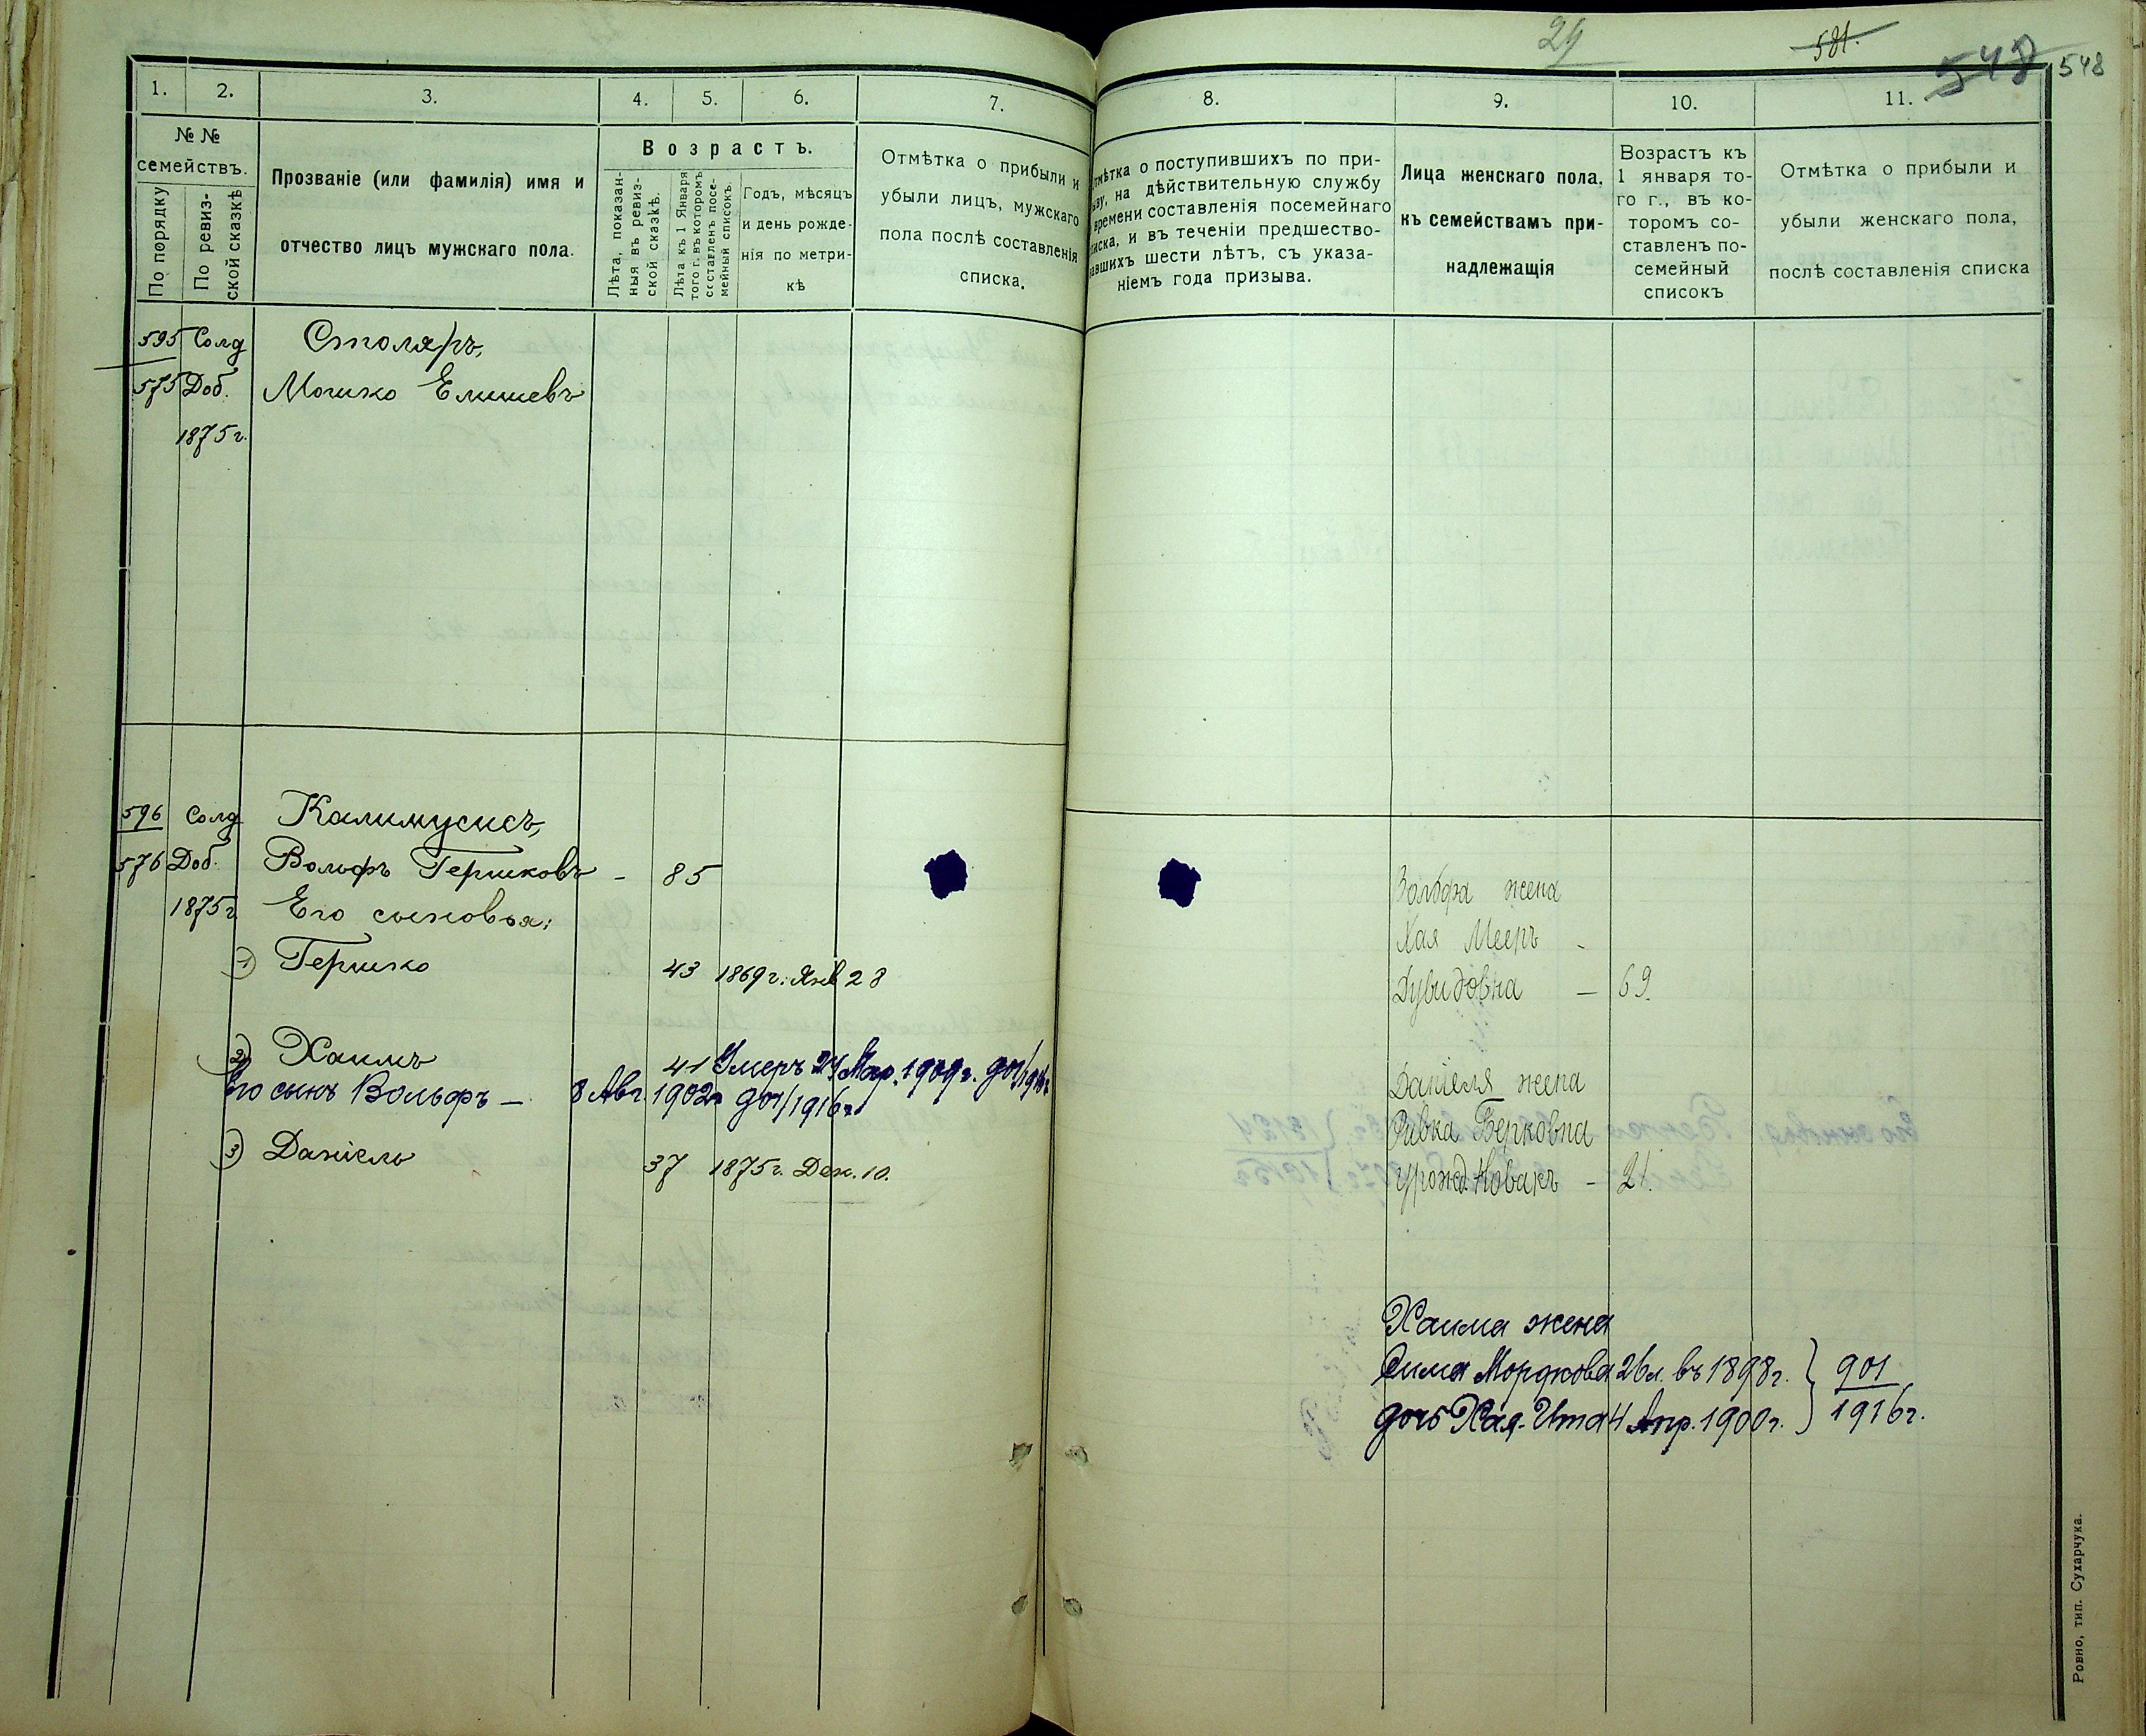 29
581.
548
548
1.
2.
3.
4.
5.
6.
7.
№ №
семействъ.
По порядку
По ревиз-
ской сказкѣ
Прозваніе (или фамилія) имя и
отчество лицъ мужскаго пола.
Возрастъ.
Лѣта, показан-
ныя въ ревиз-
ской сказкѣ.
Лѣта къ 1 Января
того г. въ которомъ
составленъ посе-
мейный списокъ.
Годъ, мѣсяцъ
и день рожде-
нія по метри-
кѣ
Отмѣтка о прибыли и
убыли лицъ, мужскаго
пола послѣ составленія
списка.
595 Солд Столяръ,
575 Доб. Мошко Елишевъ
1875 г.
596 Солд Калимусисъ,
576 Доб. Вольфъ Гершковъ - 85
1875 г Его сыновья:
1) Гершко 43 1869 г. Янв 28
2) Хаимъ 41 Умеръ 24 Мар. 1909 г. 901/1916 г.
Его сынъ Вольфъ - 8 Авг. 1902 г 901/1916 г.
3) Даніель 37 1875 г. Дек. 10.
8.
9.
10.
11.
Отмѣтка о поступившихъ по при-
зыву, на дѣйствительную службу
времени составленія посемейнаго
списка, и въ теченіи предшество-
вавшихъ шести лѣтъ, съ указа-
ніемъ года призыва.
Лица женскаго пола,
къ семействамъ при-
надлежащія
Возрастъ къ
1 января то-
го г., въ ко-
торомъ со-
ставленъ по-
семейный
списокъ
Отмѣтка о прибыли и
убыли женскаго пола,
послѣ составленія списка
Вольфа жена
Хая Мееръ -
Дувидовна - 69.
Даніеля жена
Ривка Берковна
урожд. Новакъ - 21.
Хаима жена
Сима Мордкова 26 л. въ 1898 г. } 901
дочь Хая-Ита 4 Апр. 1900 г. } 1916 г.
Ровно, тип. Сухарчука.